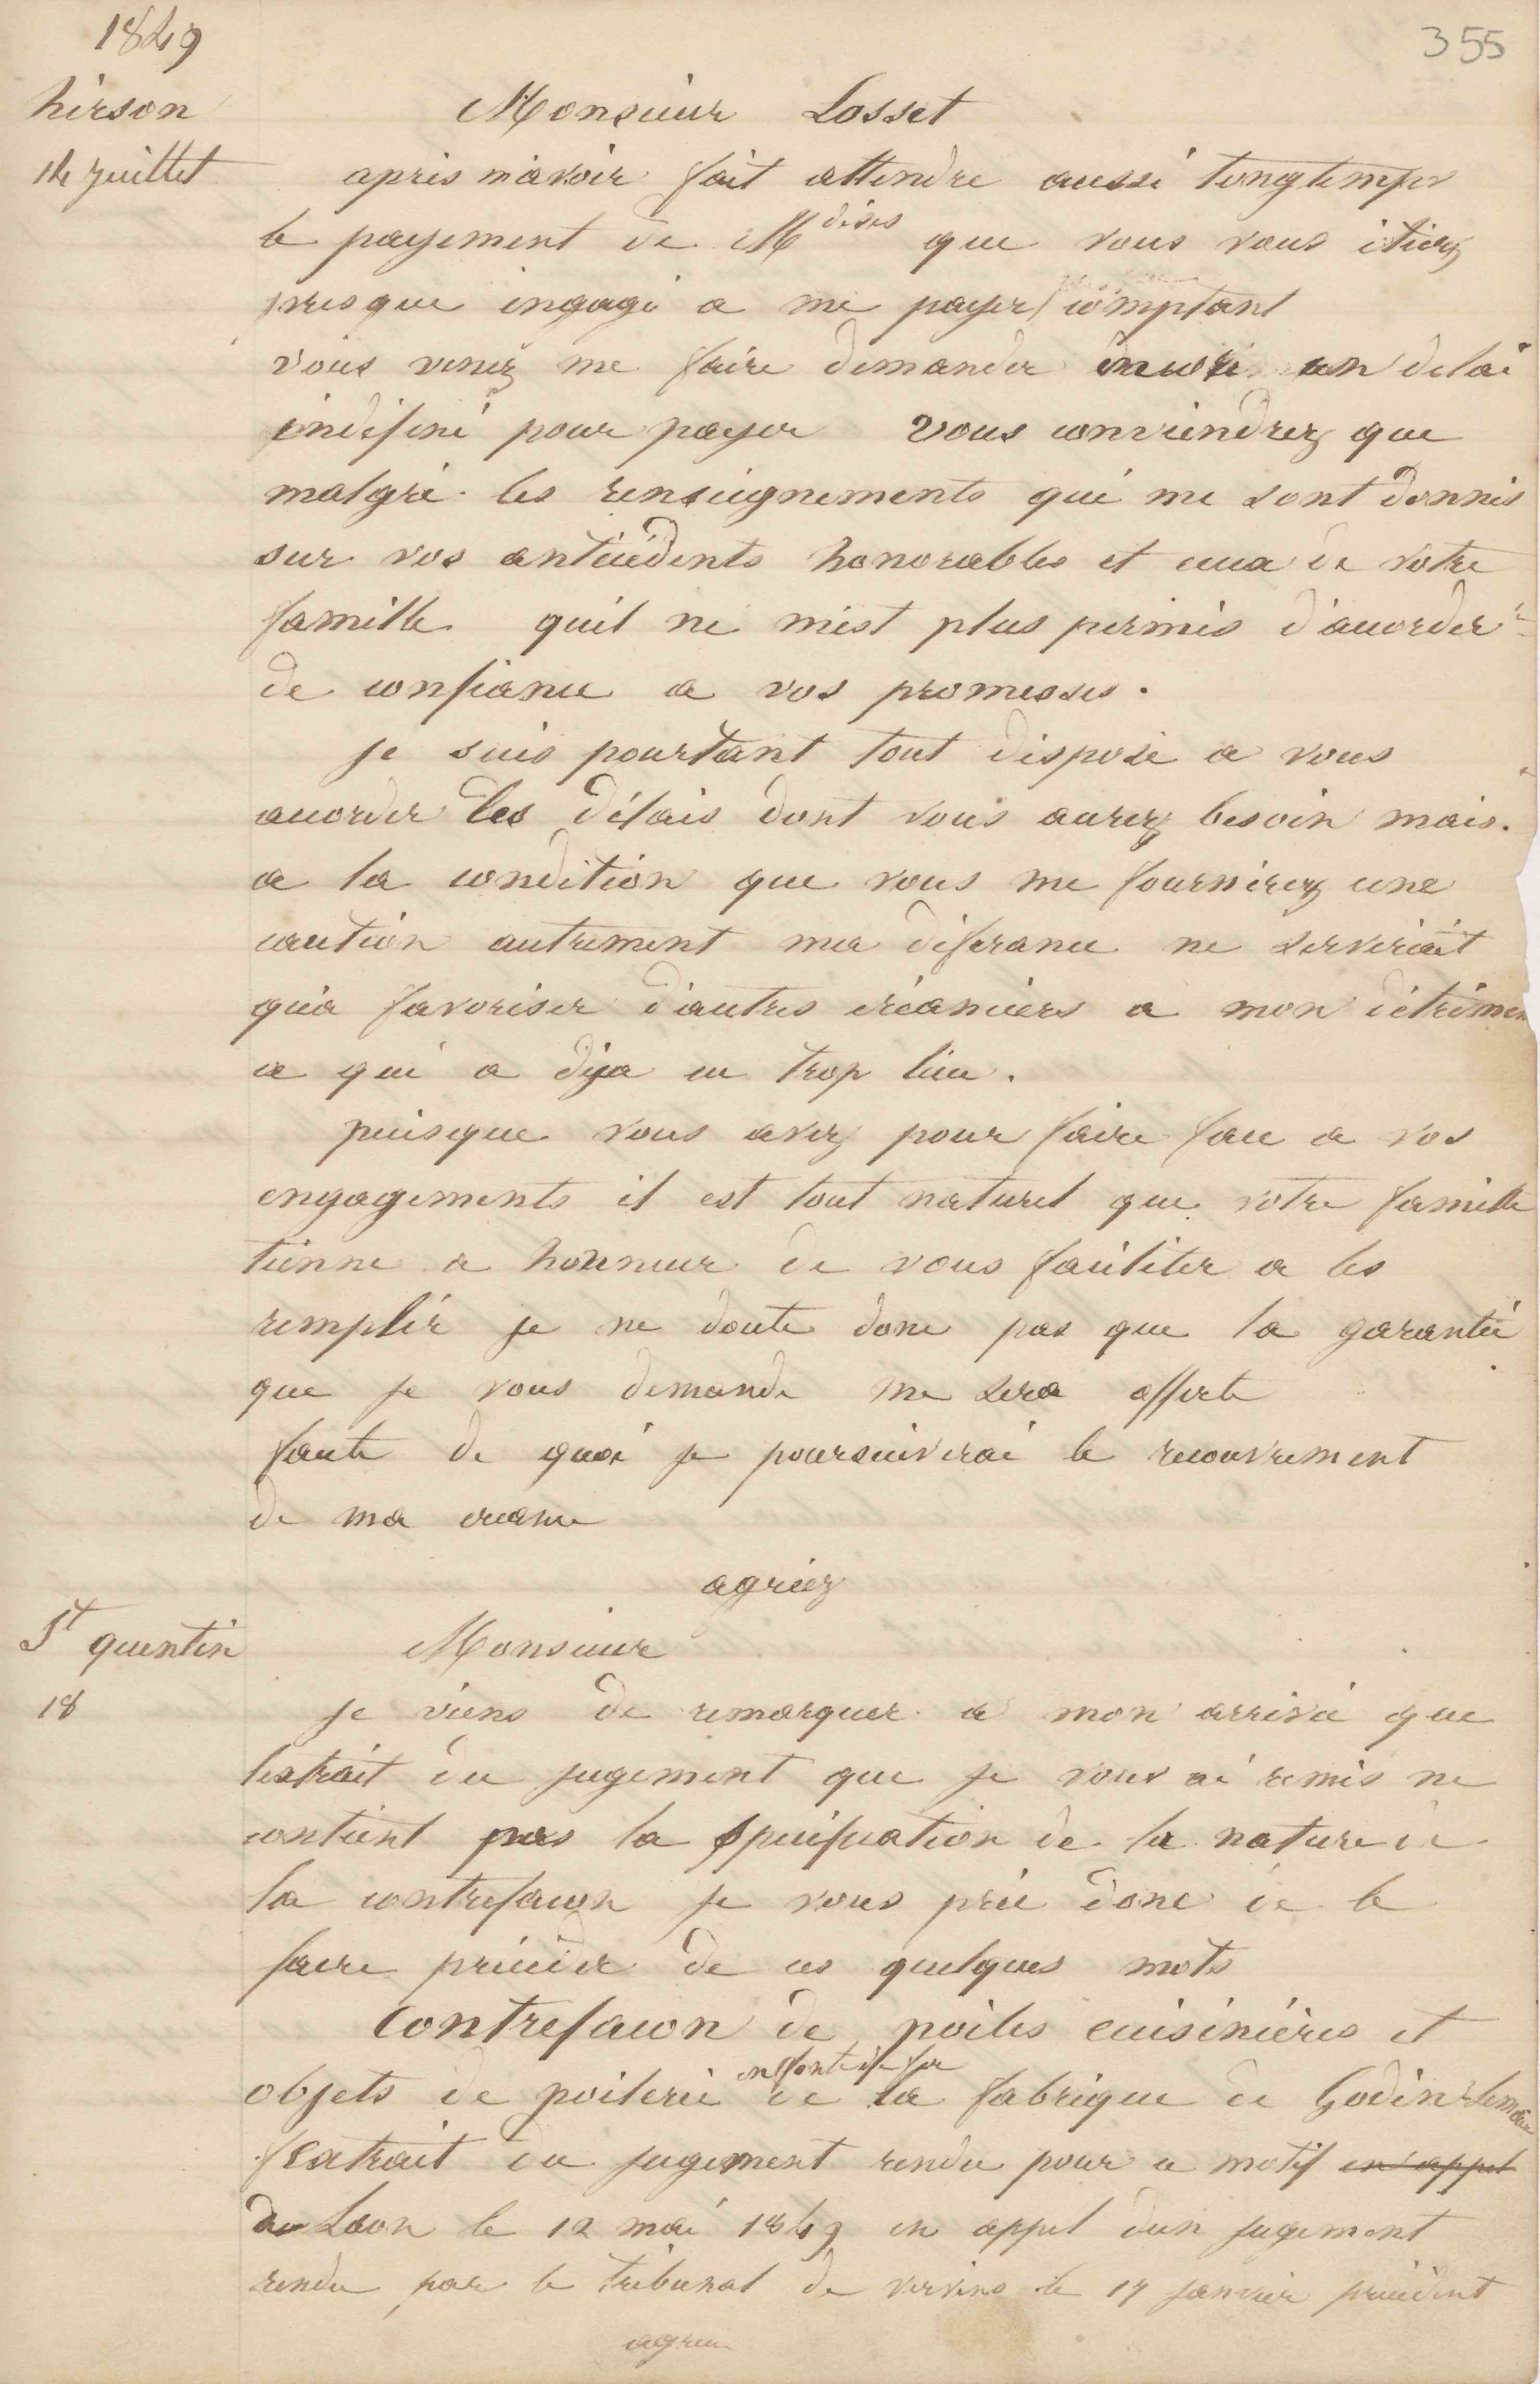 1849
355
hirson
Monsieur Losset
14 juillet
aprés m'avoir fait attendre aussi longtemps
le payement de M dises que vous vous étiez
presque engagé a me payer comptant
vous venez me faire demander encore un delai
indefini pour payer vous conviendrez que
malgré les renseignements qui me sont donnés
sur vos antécédents honorables et ceux de votre
famille quil ne m'est plus permis d'accorder
de confiance a vos promesses.
je suis pourtant tout disposé a vous
accorder les délais dont vous aurez besoin mais.
a la condition que vous me fournirez une
caution autrement ma déferance ne serverait
qu'a favoriser d'autres créanciers a mon détrimen
ce qui a deja eu trop lieu.
puisque vous avez pour faire face a vos
engagements il est tout naturel que votre famille
tienne a honneur de vous faciliter a les
remplir je ne doute donc pas que la garantie
que je vous demande me sera offerte
faute de quoi je poursuiverai le recouvrement
de ma creance
agréez
St quentin
Monsieur
18
je viens de remarquer a mon arrivée que
lextrait du jugement que je vous ai remis ne
contient pas la spécification de la nature de
la contrefacon je vous prie donc de le
faire précéder de ces quelques mots
Contrefacon de poëles cuisinières et
objets de poëlerie en fonte de fer de la fabrique de Godin Lemaire
extrait du jugement rendu pour ce motif en appel
de Laon le 12 mai 1849 en appel d'un jugement
rendu par le tribunal de vervins le 17 janvier précédent
agréez